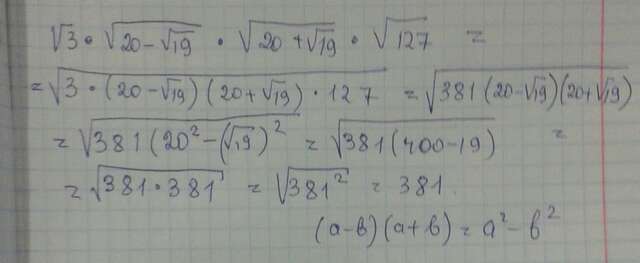 √3 • √(20-√19) • √(20+√19) • √127 =
= √(3•(20-√19)(20+√19)•127) = √(381(20-√19)(20+√19))
= √(381(20²-(√19)²) = √(381(400-19)) =
= √(381•381) = √(381²) = 381.
(a-b)(a+b) = a²-b²